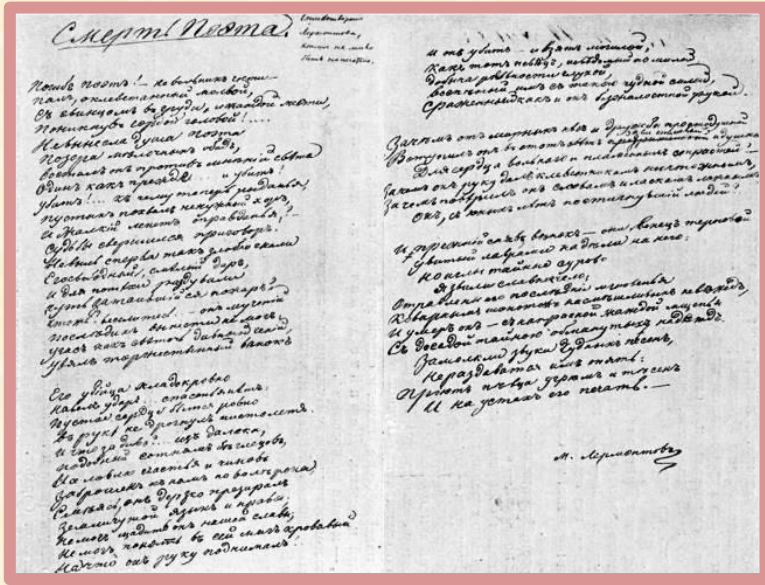 Смерть Поэта.
Стихотворение
Лермонтова,
Погибъ поэтъ! — невольникъ чести —
палъ, оклеветанный молвой,
Съ свинцомъ въ груди, и жаждой мести,
Поникнувъ гордой головой!....
Не вынесла душа поэта
Позора мелочныхъ обидъ,
возсталъ онъ противъ мнѣній свѣта
Одинъ какъ прежде... и убитъ!
убитъ!... къ чему теперь рыданья,
пустыхъ похвалъ ненужный хоръ,
И жалкій лепетъ оправданья?
Судьбы свершился приговоръ!
Не вы ль сперва такъ злобно гнали
Его свободный, смѣлый даръ,
и для потѣхи раздували
чуть затаившійся пожаръ?
чтожъ? веселитесь!.. — онъ мученій
последнихъ вынести не могъ
угасъ какъ свѣточъ дивный геній,
увялъ торжественный вѣнокъ
Его убійца хладнокровно
навелъ ударъ... спасенья нѣтъ.
Пустое сердце бьется ровно
Въ рукѣ не дрогнулъ пистолетъ.
И что за диво?... изъ далека,
подобный сотнямъ бѣглецовъ,
На ловлю счастья и чиновъ
Заброшенъ къ намъ по волѣ рока,
Смѣясь, онъ дерзко презиралъ
Земли чужой языкъ и нравы,
не могъ щадить онъ нашей славы;
Не могъ понять въ сей мигъ кровавый
На что онъ руку поднималъ!..
и онъ убитъ — и взятъ могилой,
Какъ тотъ пѣвецъ, невѣдомый но милой
добыча ревности глухой,
воспѣтый имъ съ такою чудной силой,
Сраженный какъ и онъ безжалостной рукой.
Зачѣмъ отъ мирныхъ нѣгъ и дружбы простодушной
Вступилъ онъ въ этотъ свѣтъ завистливый и душной
Для сердца вольнаго и пламенныхъ страстей?
Зачѣмъ онъ руку далъ клеветникамъ ничтожнымъ,
Зачемъ повѣрилъ онъ словамъ и ласкамъ ложнымъ
Онъ, съ юныхъ лѣтъ постигнувшій людей?
И прежній снявъ вѣнокъ — они вѣнецъ терновой
увитый лаврами надѣли на него:
Но иглы тайныя сурово
Язвили славное чело;
Отравленъ его послѣднія мгновенья
Коварнымъ шопотомъ насмѣшливыхъ невѣждъ,
И умеръ онъ — съ напрасной жаждой мщенья
Съ досадой тайною обманутыхъ надеждъ.
Замолкли звуки чудныхъ песенъ,
Не раздаваться имъ опять:
Пріютъ пѣвца угрюмъ и тѣсенъ
И на устахъ его печать. —
М. Лермонтовъ